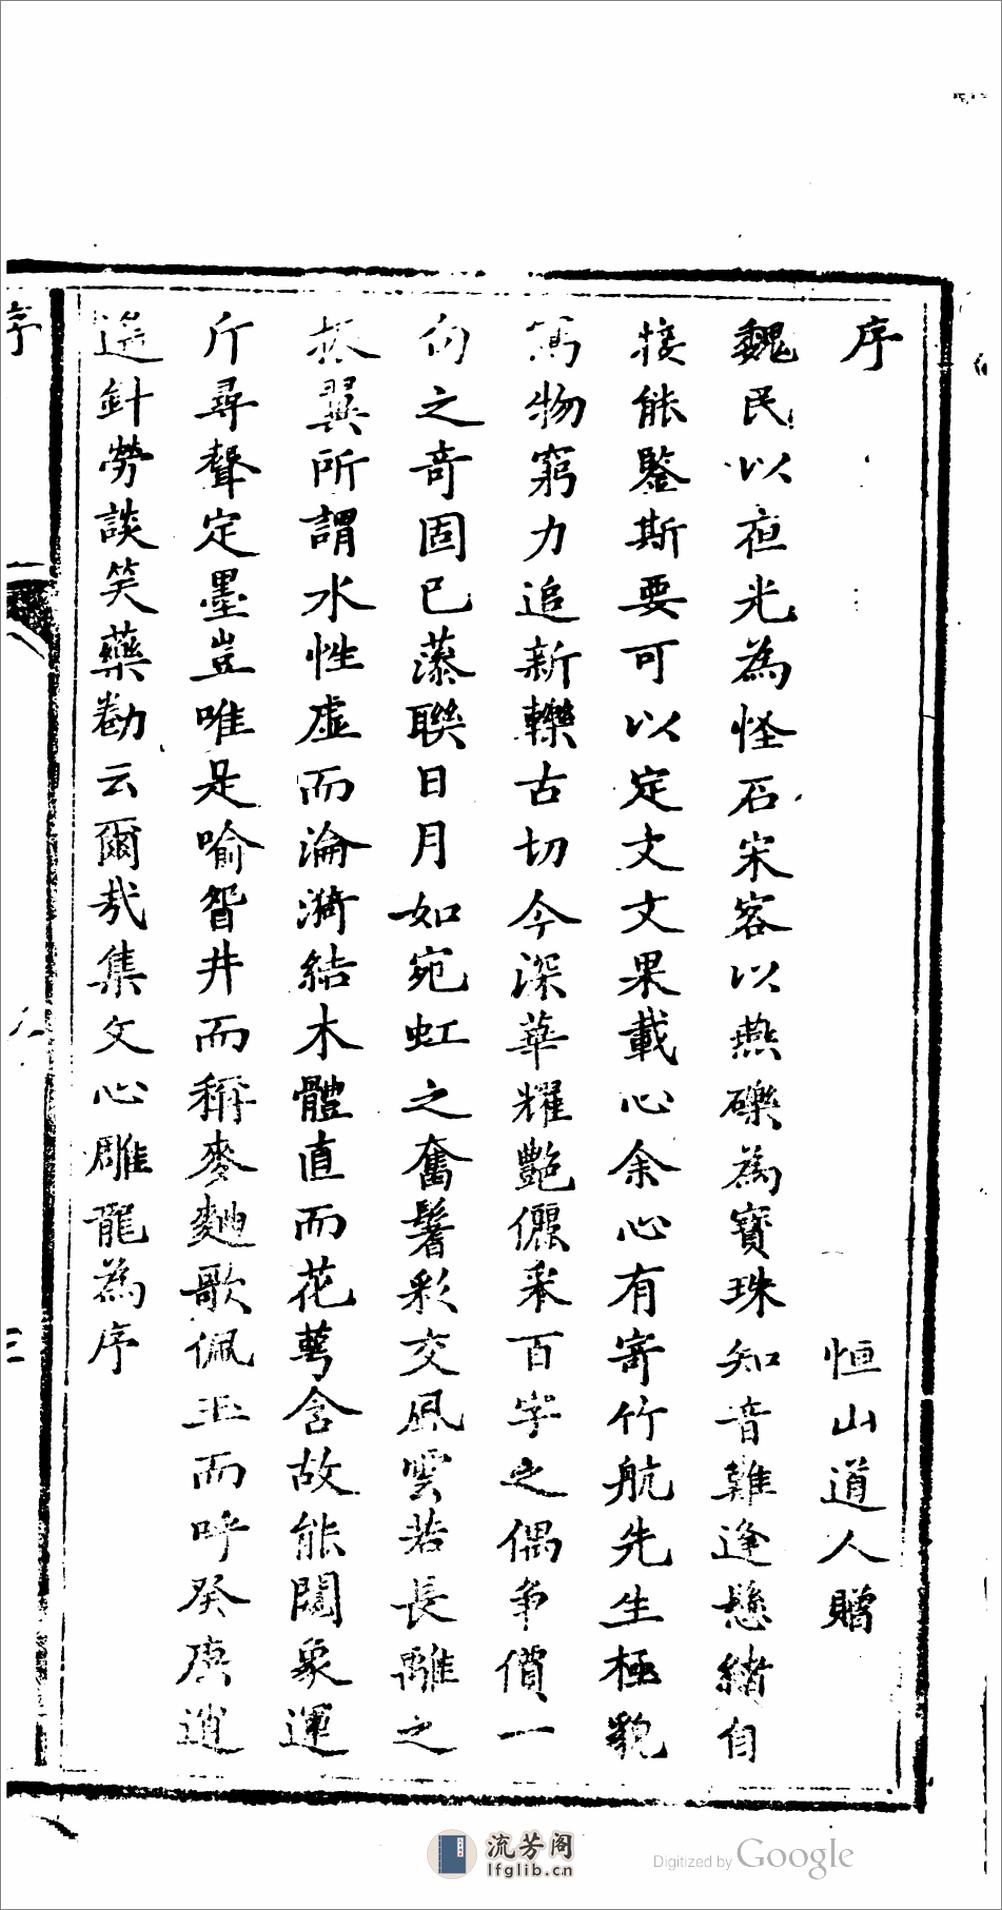 序
恒山道人贈
魏民以夜光為怪石宋客以燕礫為寶珠知音難逢懸緒自
接能鑒斯要可以定文文果載心余心有寄竹航先生極貌
寫物窮力追新轢古切今深華耀艷儷采百字之偶爭價一
句之奇固已藻聯日月如宛虹之奮鬐彩交風雲若長離之
振翼所謂水性虛而淪漪結木體直而花萼含故能闚象運
斤尋聲定墨豈唯是喻眢井而稱麥麯歌佩玉而呼癸庚逍
遙針勞談笑藥勌云爾哉集文心雕龍為序
序
三
流芳阁
lfglib.cn
Digitized by Google